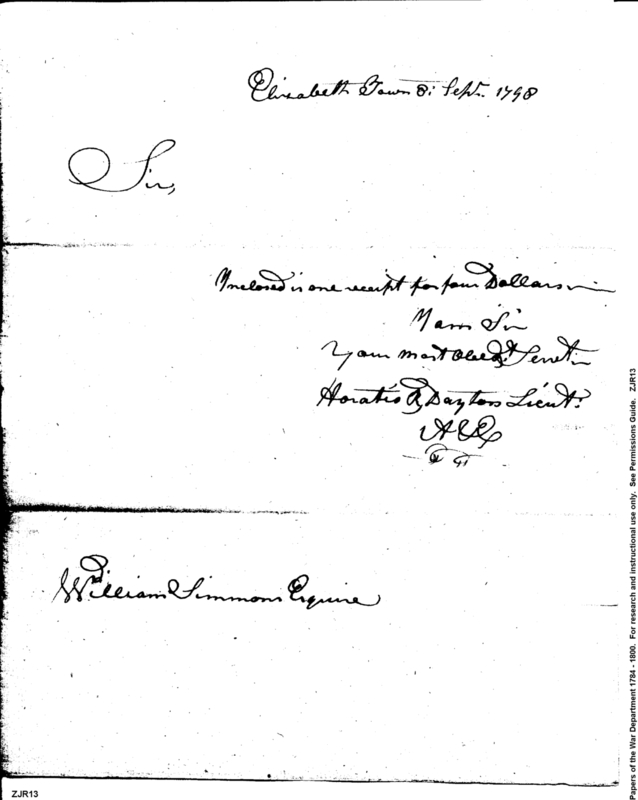 Elizabeth Town 8: Sept. 1798
Sir,
Inclosed is one receipt for four Dollars
I am Sir
Your most Obedt. Servt.
Horatio R Dayton Lieut.
William Simmons Esquire
Papers of the War Department 1784 - 1800. For research and instructional use only. See Permissions Guide. ZJR13
ZJR13